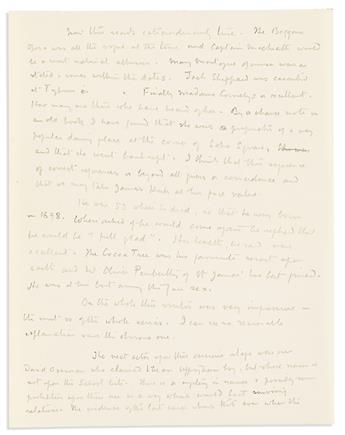 Now this reads extraordinarily true. The Beggars
Opera was all the vogue at the time and Captain Macheath would
be a most natural allusion. Mary Montague of course was as
stated, comes within the dates. Jack Sheppard was executed
at Tyburn in . Finally Madame Cornelys is excellent.
How many are there who have heard of her. By a chance note in
an old book I have found that she was a proprietor of a very
popular dancing place at the corner of Soho Square,
and that she went bankrupt. I think that this sequence
of correct references is beyond all guess or coincidence and
that we may take James at his face value.
He was 53 when he died, so that he was born
in 1698. When asked if he would come again he replied that
he would be "full glad". His health, he said, was
excellent. The Cocoa Tree was his favourite resort upon
earth and Mr Oliver Pemberthy of St James' his best friend.
He was at his best among the fair sex.
On the whole this visitor was very impressive in
the most so of the whole series. I can see no reasonable
explanation save the obvious one.
The next actor upon this curious stage was one
David Overman who claimed to be an Uppingham boy, but whose name is
not upon the School lists. There is a mystery in names &
prohibition upon their use in a way which would hurt surviving
relatives. The evidence of the last case shows that even when the